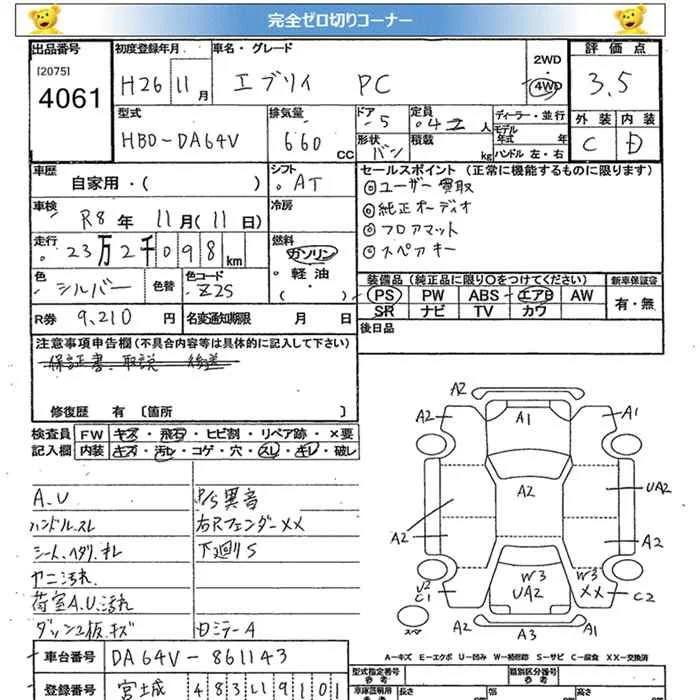 完全ゼロ切りコーナー
出品番号 初度登録年月 車名・グレード 2WD 評価点
[2075] 4061 H26 11月 エブリイ PC 4WD 3.5
型式 排気量 ドア 定員 ディーラー・並行 外装 内装
HBD-DA64V 660 CC 5 人 モデル年式 年 C D
形状 バン 積載 kg ハンドル 左・右
車歴 シフト セールスポイント (正常に機能するものに限ります)
自家用・( ) AT ◎ユーザー買取
車検 冷房 ◎純正オーディオ
R8年 11月(11日) ◎フロアマット
走行 燃料 ◎スペアキー
23万2千098km ガソリン
軽油
( )
色 シルバー 色替 色コード Z2S
装備品 (純正品に限り○をつけてください) 新車保証書
PS PW ABS エアB AW 有・無
SR ナビ TV カワ
R券 9,210円 名変通知期限 月 日
後日品
注意事項申告欄(不具合内容等は具体的に記入して下さい)
保証書、取説 後送
修復歴 有 [箇所 ]
検査員 FW キズ・飛石・ヒビ割・リペア跡・×要
記入欄 内装 キズ・汚レ・コゲ・穴・スレ・キレ・破レ
A.U P/S異音
ハンドルスレ 右Rフェンダー××
シート、ヘタリ、キレ 下廻りS
ヤニ汚れ
荷室A.U.汚れ
ダッシュ板キズ ロミラーA
A2
A2 A1 A1
A2 UA2
A2 A2
U2 C1 W3 UA2 W3 ×× C2
スペア A2 A3 A1
A-キズ E-エクボ U-凹み W-補修跡 S-サビ C-腐食 XX-交換済
車台番号 DA64V-861143
型式指定番号 参考 類別区分番号 参考
登録番号 宮城 483 い 9101
車体証明用 参考 長さ cm 幅 cm 高さ